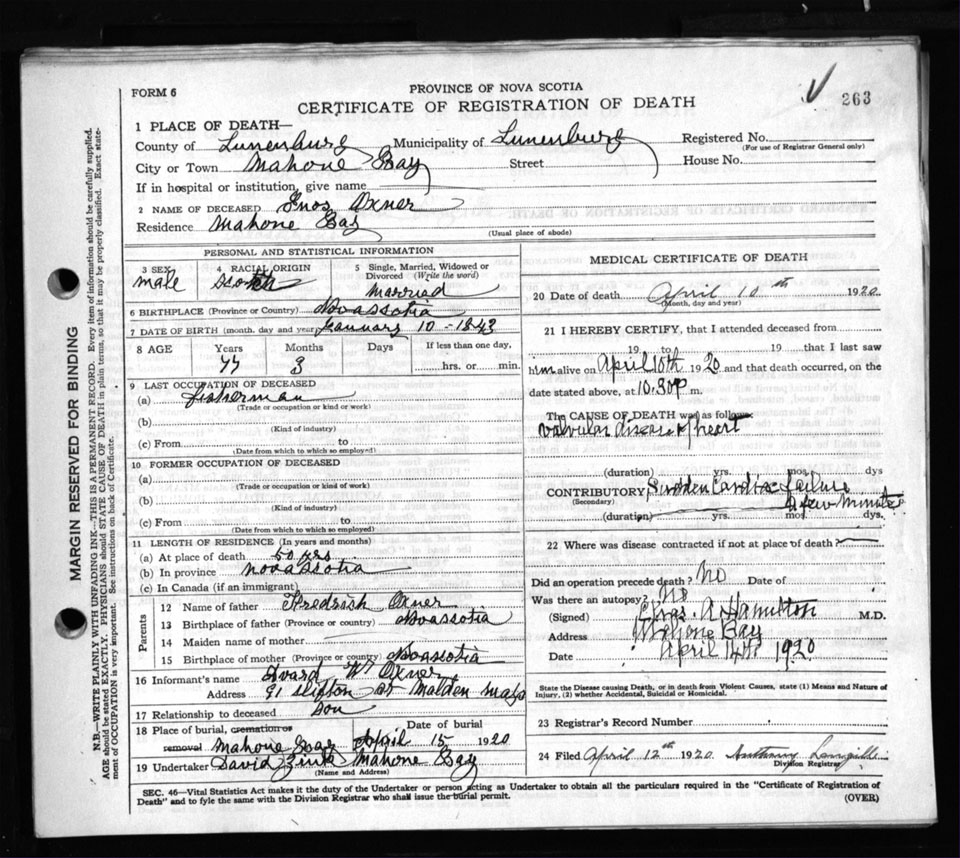 FORM 6
PROVINCE OF NOVA SCOTIA
CERTIFICATE OF REGISTRATION OF DEATH
263
1 PLACE OF DEATH—
County of Lunenburg Municipality of Lunenburg Registered No.
(For use of Registrar General only)
City or Town Mahone Bay Street House No.
If in hospital or institution, give name
2 NAME OF DECEASED Enos Oxner
Residence Mahone Bay
(Usual place of abode)
PERSONAL AND STATISTICAL INFORMATION
3 SEX male
4 RACIAL ORIGIN Scotch
5 Single, Married, Widowed or Divorced (Write the word) Married
6 BIRTHPLACE (Province or Country) Novascotia
7 DATE OF BIRTH (month, day and year) January 10 - 1843
8 AGE Years Months Days If less than one day,
77 3 hrs. or min.
9 LAST OCCUPATION OF DECEASED
(a) fisherman
(Trade or occupation or kind or work)
(b)
(Kind of industry)
(c) From to
(Date from which to which so employed)
10 FORMER OCCUPATION OF DECEASED
(a)
(Trade or occupation or kind of work)
(b)
(Kind of industry)
(c) From to
(Date from which to which so employed)
11 LENGTH OF RESIDENCE (In years and months)
(a) At place of death 50 yrs
(b) In province Novascotia
(c) In Canada (if an immigrant)
Parents
12 Name of father Fredrick Oxner
13 Birthplace of father (Province or country) Novascotia
14 Maiden name of mother
15 Birthplace of mother (Province or country) Novascotia
16 Informant's name Avard W Oxner
Address 91 Clifton St Malden Mass
17 Relationship to deceased Son
18 Place of burial, cremation or removal Mahone Bay Date of burial April 15 1920
19 Undertaker David Zink Mahone Bay
(Name and Address)
MEDICAL CERTIFICATE OF DEATH
20 Date of death April 10th 1920
(Month, day and year)
21 I HEREBY CERTIFY, that I attended deceased from
19 to 19 that I last saw
him alive on April 10th 1920 and that death occurred, on the
date stated above, at 10.30 P m.
The CAUSE OF DEATH was as follows
Valvular disease of heart
(duration) yrs. mos. dys
CONTRIBUTORY Sudden Cardiac Failure
(Secondary) a few minutes
(duration) yrs. mos. dys.
22 Where was disease contracted if not at place of death?
Did an operation precede death? No Date of
Was there an autopsy? No
(Signed) Chas. A Hamilton M.D.
Address Mahone Bay
Date April 14th 1920
State the Disease causing Death, or in death from Violent Causes, state (1) Means and Nature of
Injury, (2) whether Accidental, Suicidal or Homicidal.
23 Registrar's Record Number
24 Filed April 12th 1920 Anthony Langille
Division Registrar
SEC. 46—Vital Statistics Act makes it the duty of the Undertaker or person acting as Undertaker to obtain all the particulars required in the "Certificate of Registration of
Death" and to fyle the same with the Division Registrar who shall issue the burial permit.
(OVER)
MARGIN RESERVED FOR BINDING
N.B.—WRITE PLAINLY WITH UNFADING INK—THIS IS A PERMANENT RECORD. Every item of information should be carefully supplied.
AGE should be stated EXACTLY. PHYSICIANS should STATE CAUSE OF DEATH in plain terms, so that it may be properly classified. Exact statement
of OCCUPATION is very important. See instructions on back of Certificate.